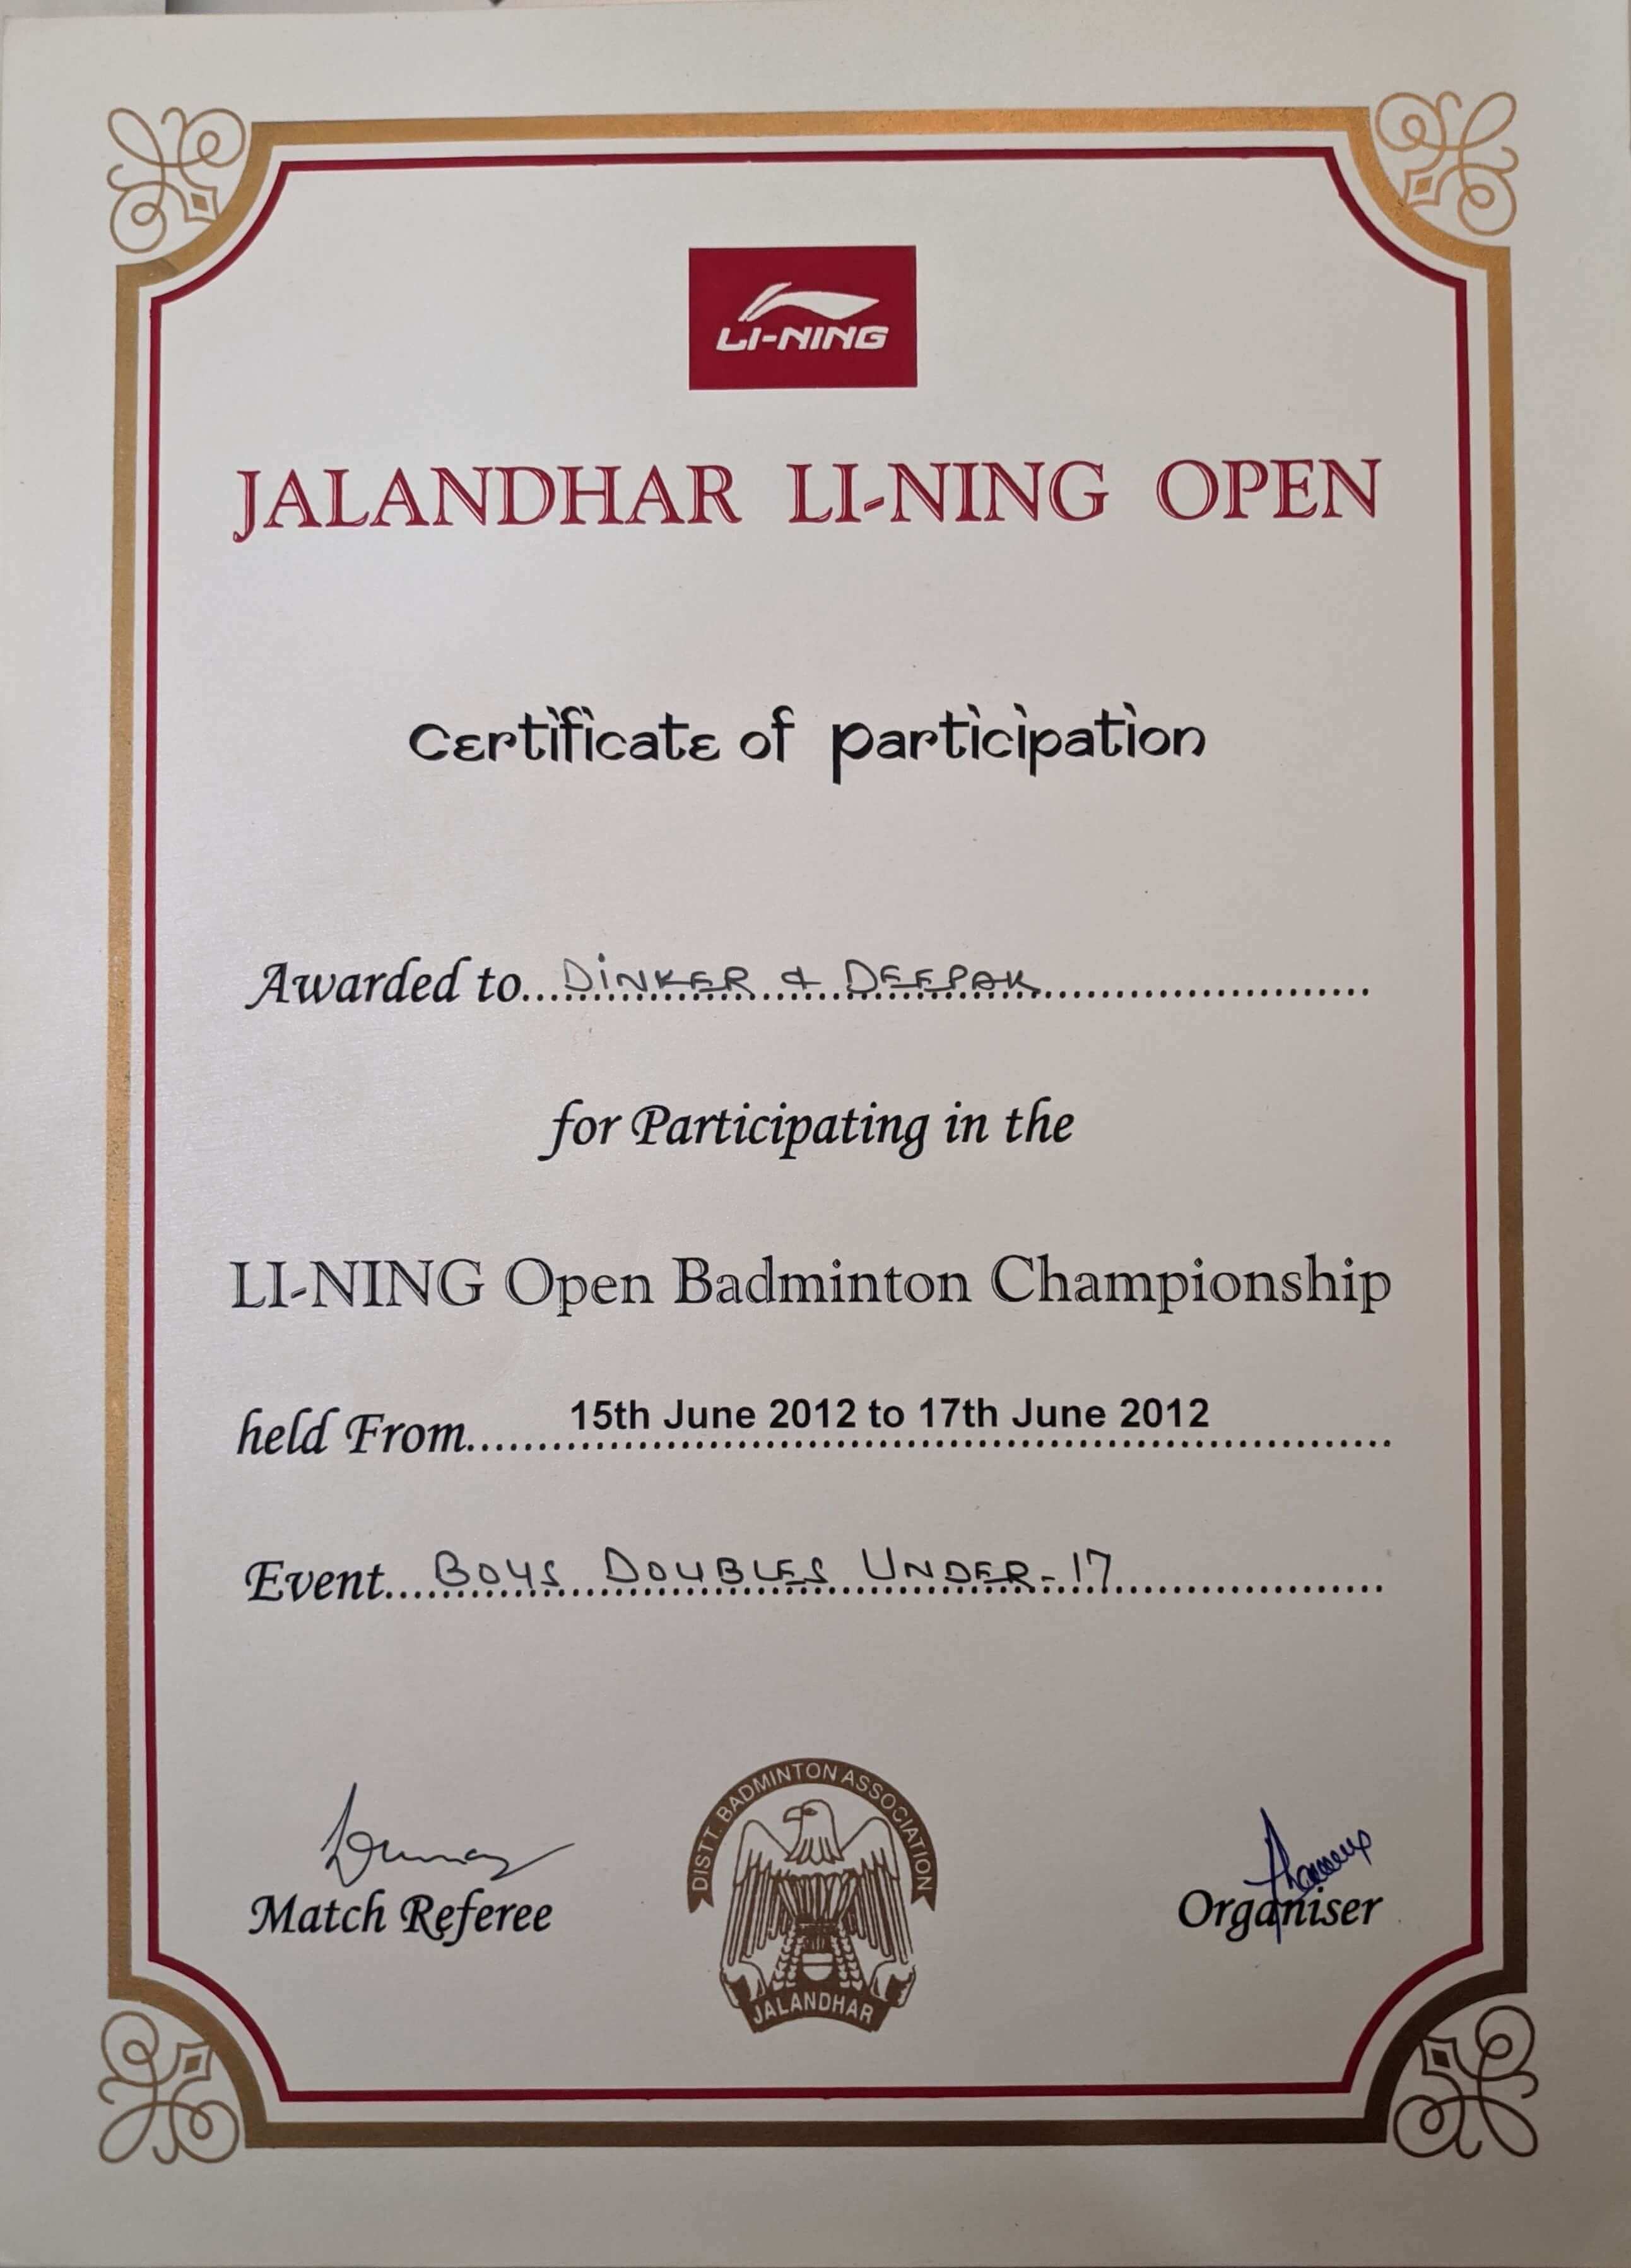 LI-NING
JALANDHAR LI-NING OPEN
Certificate of participation
Awarded to DINKER & DEEPAK
for Participating in the
LI-NING Open Badminton Championship
held From 15th June 2012 to 17th June 2012
Event BOYS DOUBLES UNDER-17
DISTT. BADMINTON ASSOCIATION
JALANDHAR
Match Referee
Organiser